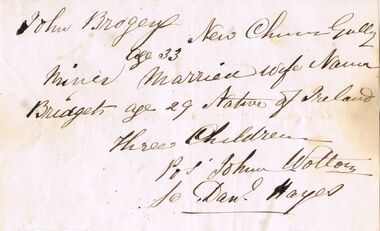 John Brogey New Chum Gully
age 33
Miner Married Wife Name
Bridget age 29 Native of Ireland
Three Children
John
Danl Hayes